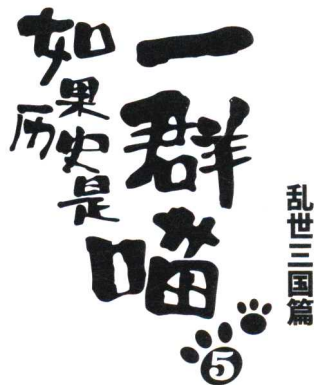 如果历史是
一群喵
乱世三国篇
5